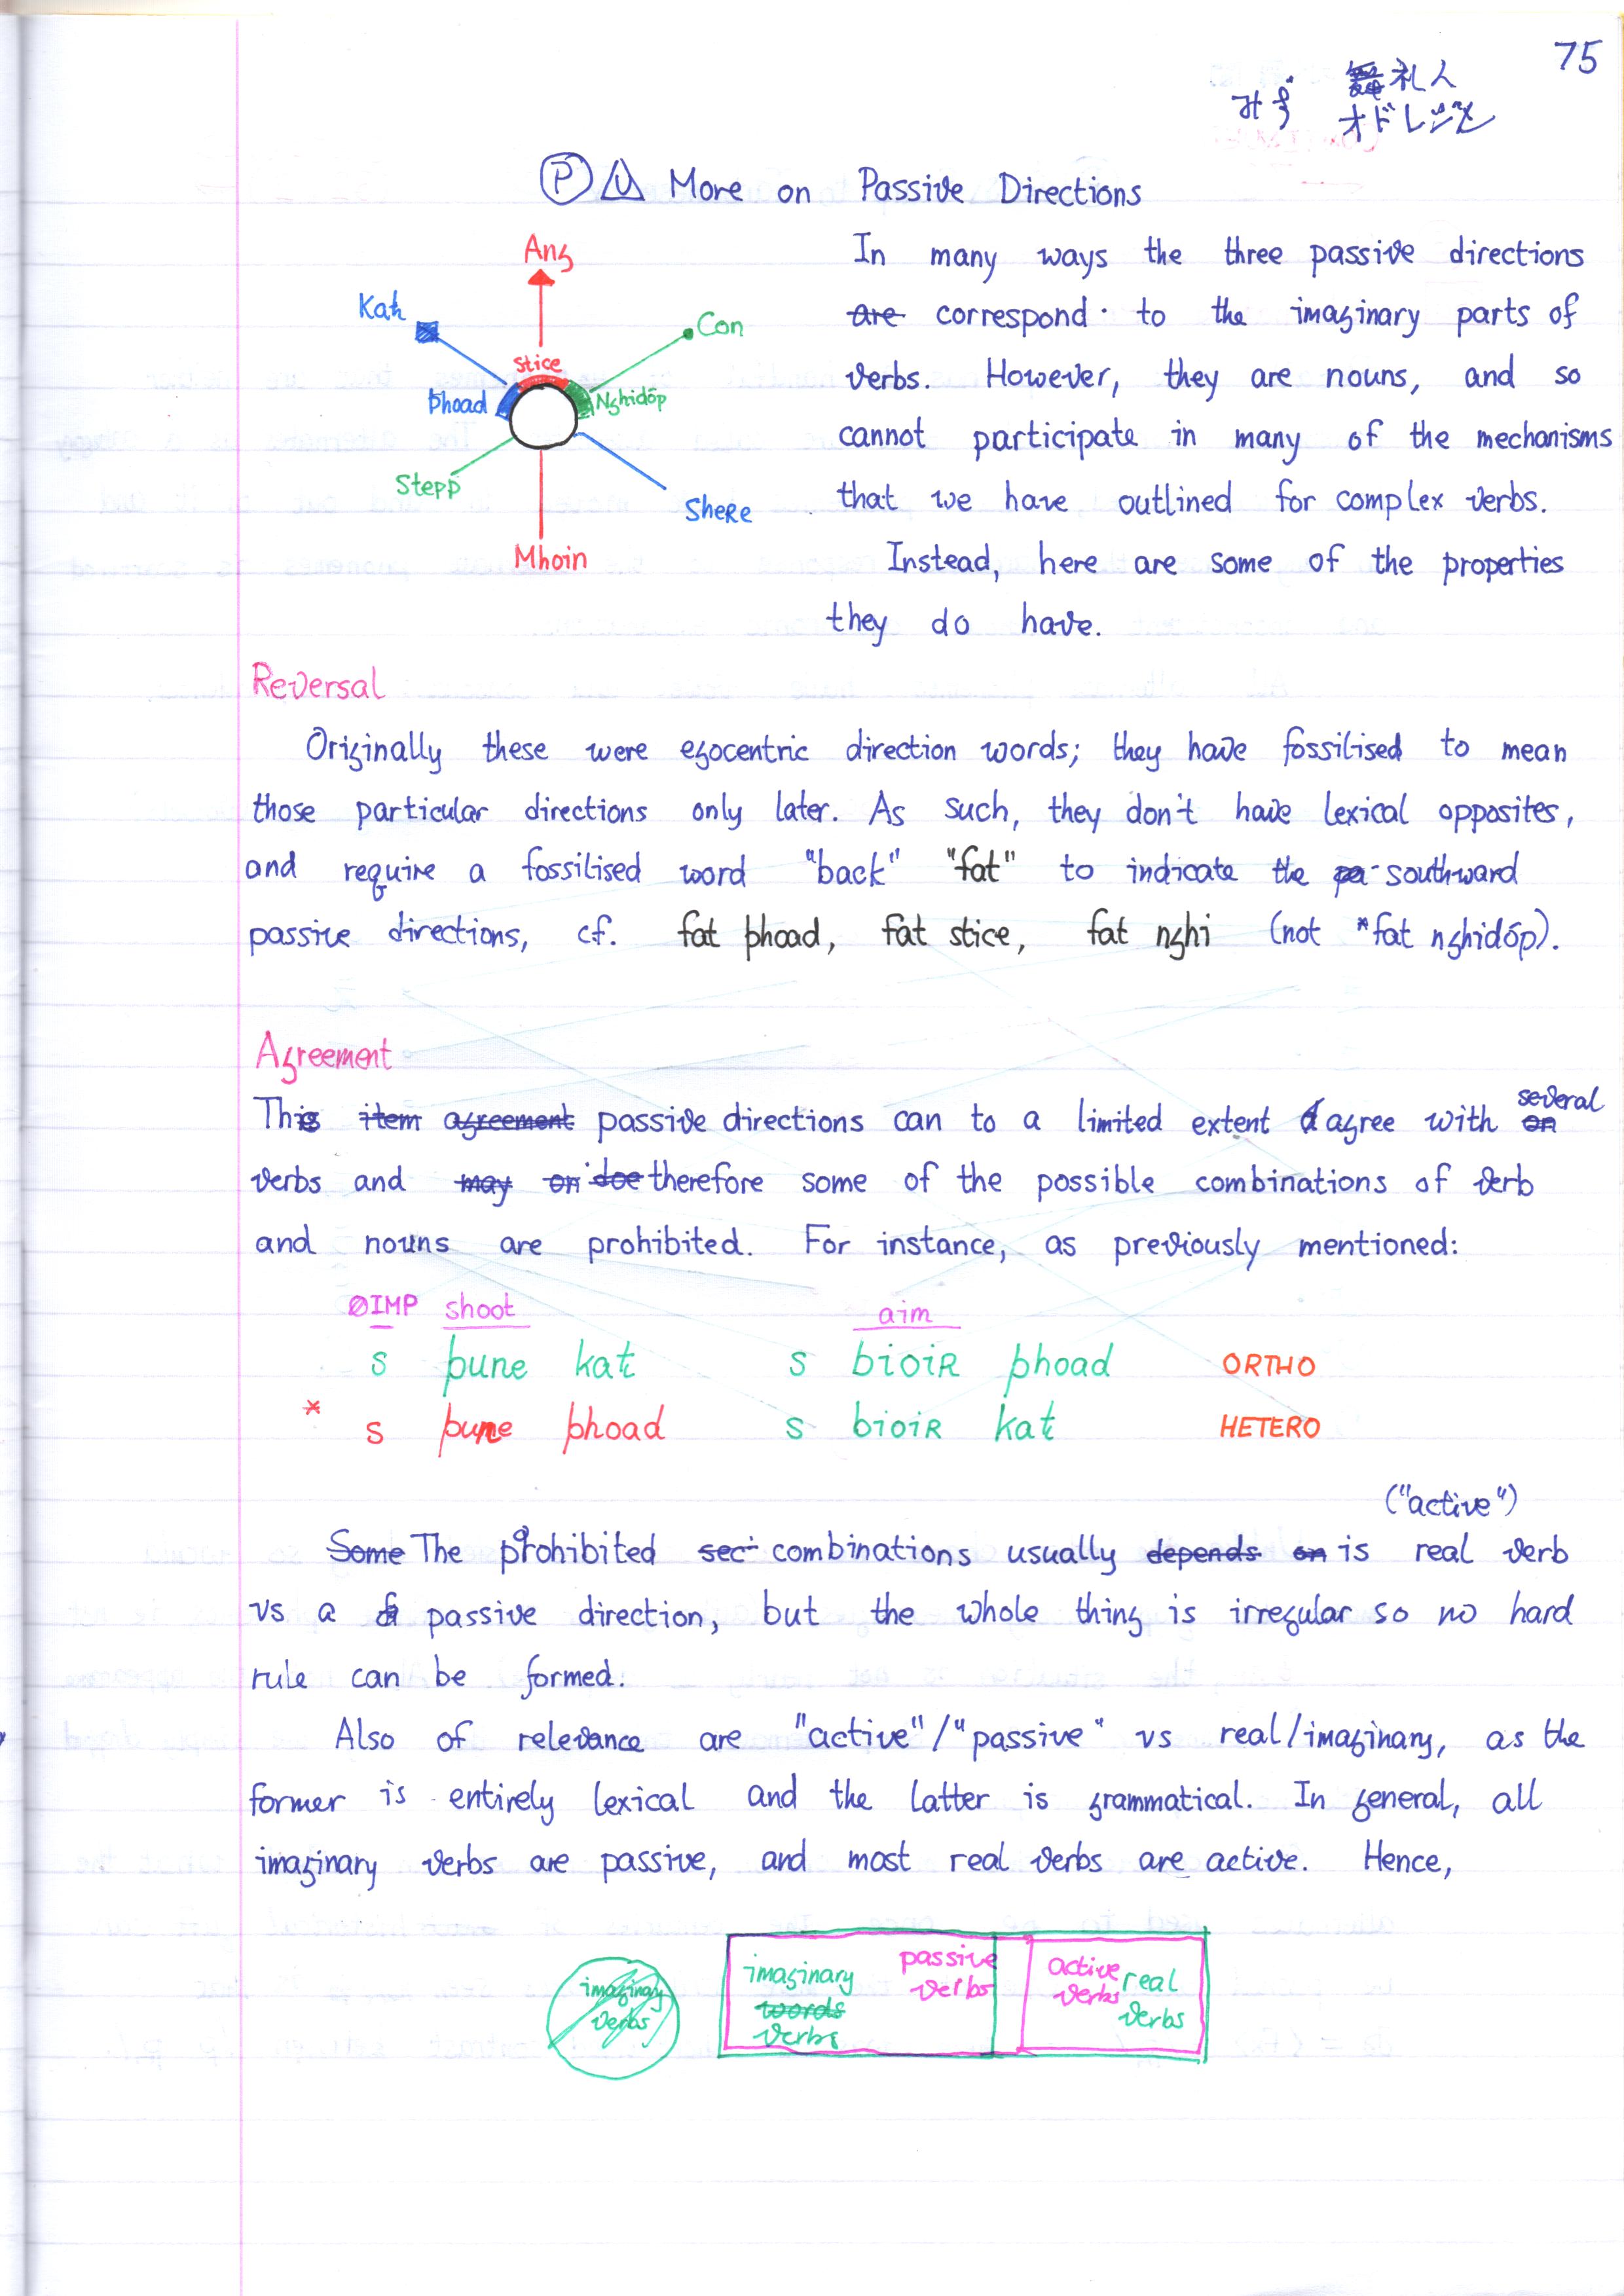 75
舞礼人
オドレジン
Ⓟ U More on Passive Directions
Ang
Kah
Con
Stice
Phoad
Nghidóp
Stepp
SheRe
Mhoin
In many ways the three passive directions
are correspond to the imaginary parts of
verbs. However, they are nouns, and so
cannot participate in many of the mechanisms
that we have outlined for complex verbs.
Instead, here are some of the properties
they do have.
Reversal
Originally these were egocentric direction words; they have fossilised to mean
those particular directions only later. As such, they don't have lexical opposites,
and require a fossilised word "back" "fat" to indicate the pa southward
passive directions, cf. fat phoad, fat stice, fat nghi (not *fat nghidóp).
Agreement
This item agreement passive directions can to a limited extent agree with on several
verbs and may on doe therefore some of the possible combinations of verb
and nouns are prohibited. For instance, as previously mentioned:
ØIMP shoot aim
s pune kat s bioiR phoad ORTHO
* s pune phoad s bioiR kat HETERO
("active")
Some The prohibited sec combinations usually depends on is real verb
vs a passive direction, but the whole thing is irregular so no hard
rule can be formed.
Also of relevance are "active"/"passive" vs real/imaginary, as the
former is entirely lexical and the latter is grammatical. In general, all
imaginary verbs are passive, and most real verbs are active. Hence,
imaginary
verbs
imaginary
words
verbs
passive
verbs
active
verbs
real
verbs